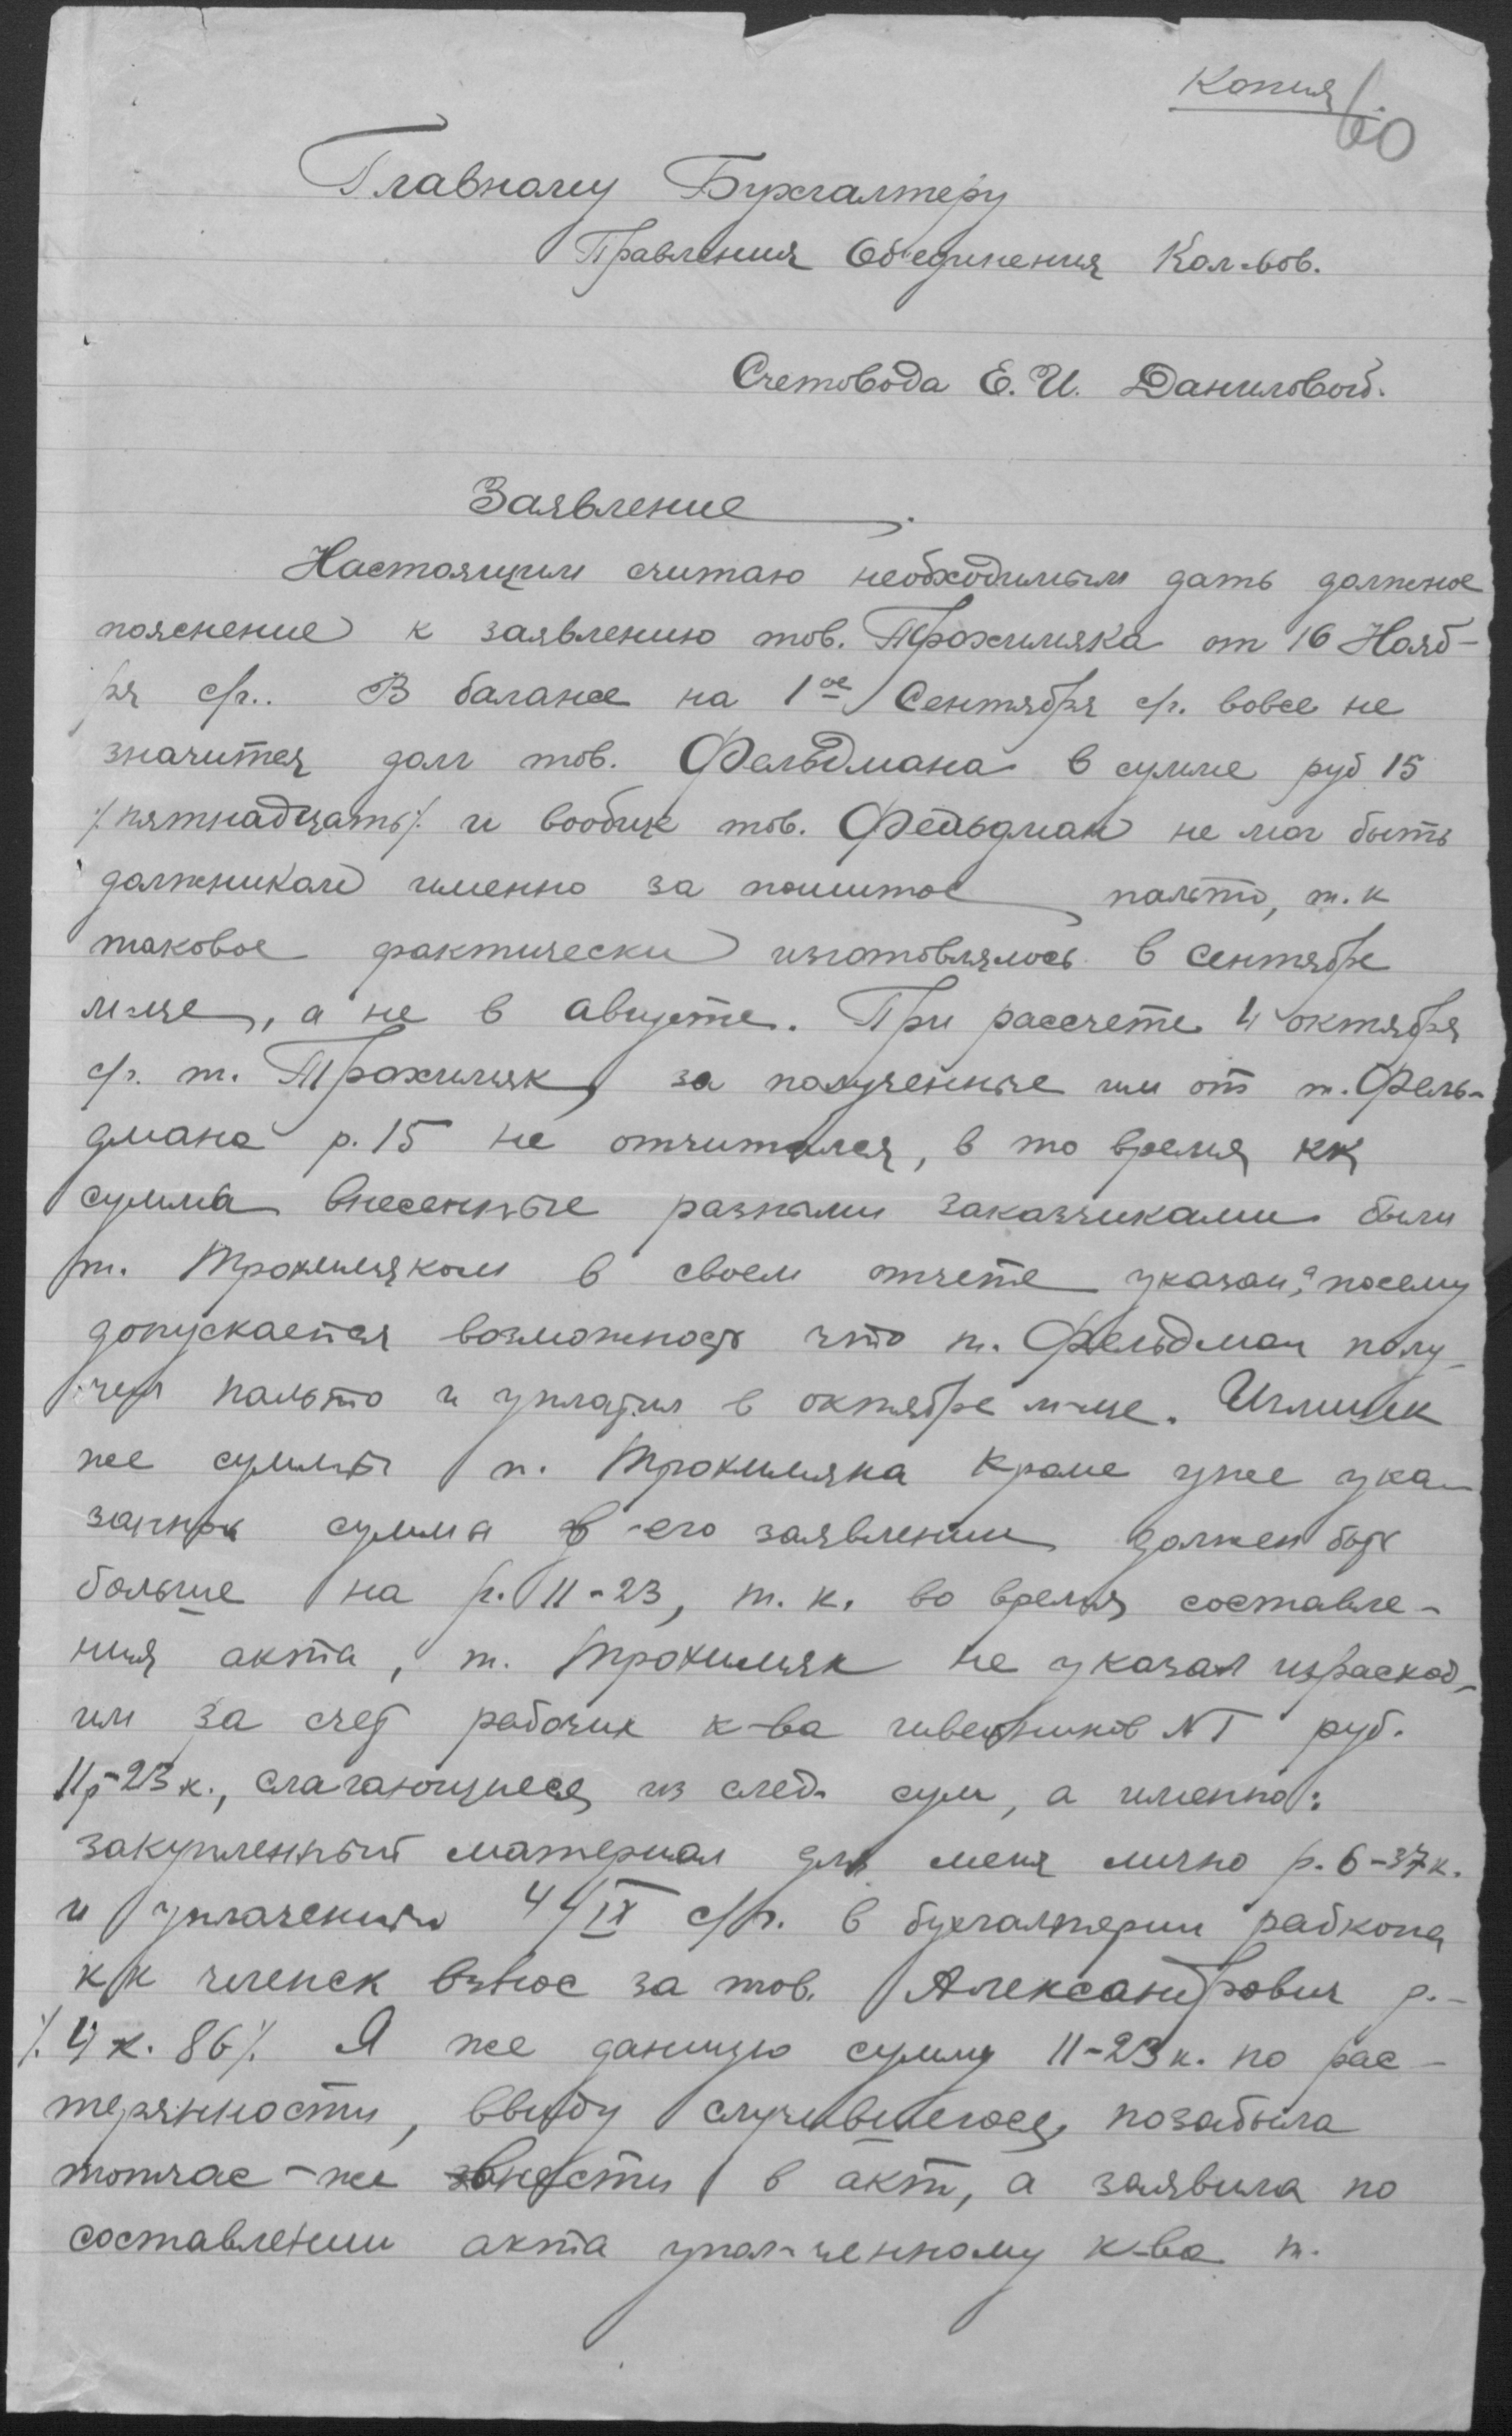 Копия
60
Главному Бухгалтеру
Правления Об'единения Кол-вов.
Счетовода Е. И. Даниловой.
Заявление
Настоящим считаю необходимым дать должное
пояснение к заявлению тов. Трохимяка от 16 Нояб-
ря с/г.. В балансе на 1ое Сентября с/г. вовсе не
значится долг тов. Фельдмана в сумме руб 15
/.пятнадцать/. и вообще тов. Фельдман не мог быть
должником именно за пошитое пальто, т. к
таковое фактически изготовлялось в сентябре
м-це, а не в августе. При рассчете 4 октября
с/г. т. Трохимяк за полученные им от т. Фель-
дмана р. 15 не отчитался, в то время кк
сумма внесенные разными заказчиками были
т. Трохимяком в своем отчете указан, а посему
допускается возможность что т. Фельдман полу-
чил пальто и уплатил в октябре м-це.
же суммы т. Трохимяка кроме уже ука-
занной суммы в его заявлении должен быть
больше на р. 11-23, т. к. во время составле-
ния акта, т. Трохимяк не указал израсход-
им за счет рабочих к-ва швейников N I руб.
11р-23к., слагающиеся из след. сум, а именно:
закупленный материал для меня лично р. 6-37к.
и уплаченных 4/IX с/г. в бухгалтерии рабкопа
к/к членск взнос за тов. Александрович р.-
/.4 к. 86/. Я же данную сумму 11-23к. по рас-
терянности, ввиду случившегося, позабыла
тотчас-же внести в акт, а заявила по
составлении акта упол-ченному к-ва т.